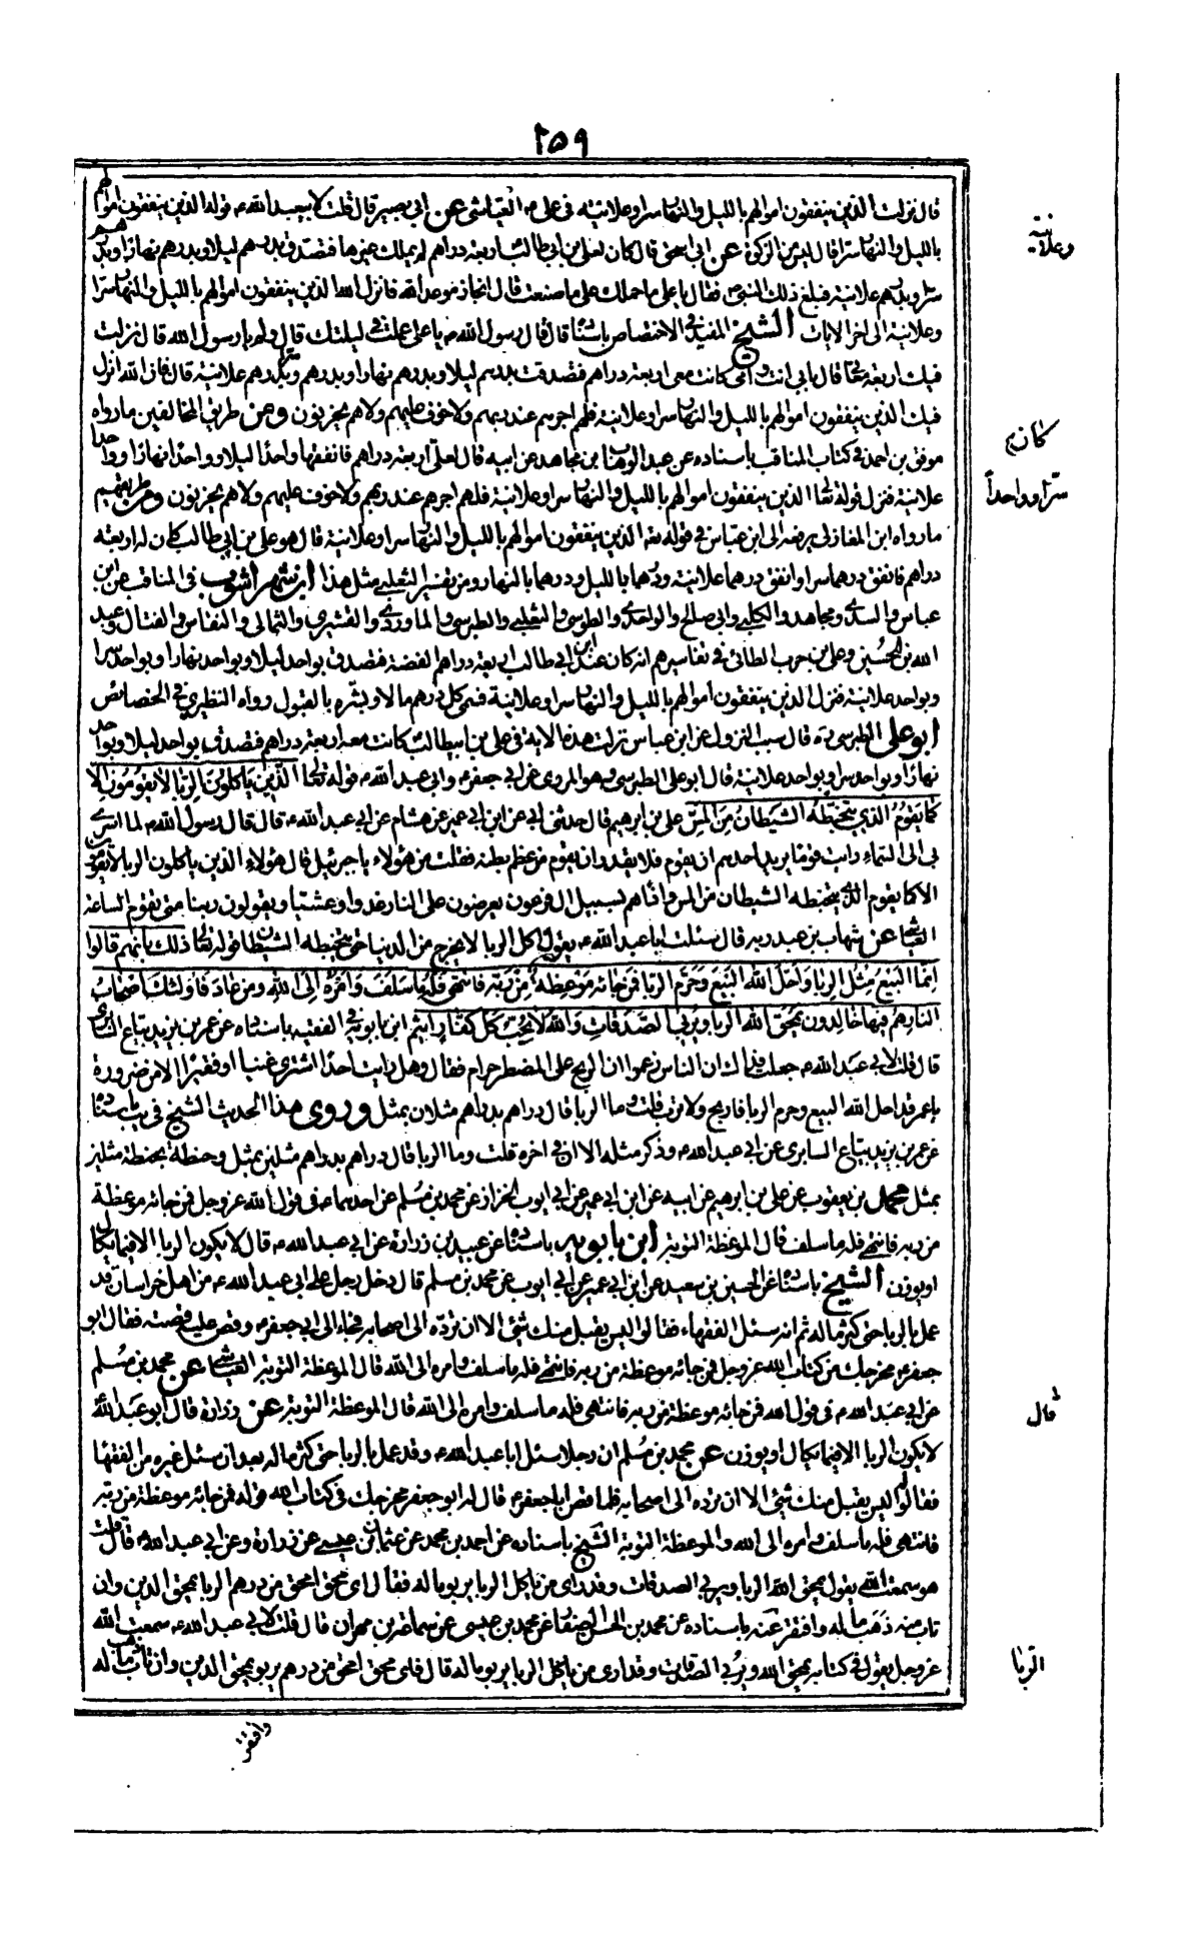 ٢٥٩
قال نزلت الذين ينفقون اموالهم بالليل والنهار سرا وعلانية فى على ع العياشى عن ابى بصير قال قلت لابيعبد الله ع قوله الذين ينفقون اموالهم
بالليل والنهار سرا قال ليس من الزكوة عن ابى اسحق قال كان لعلى بن ابى طالب اربعة دراهم لم يملك غيرها فتصدق بدرهم ليلا وبدرهم نهارا وبدرهم
سرا وبدرهم علانية فبلغ ذلك النبى ص فقال يا على ما حملك على ما صنعت قال انجاز موعد الله فانزل الله الذين ينفقون اموالهم بالليل والنهار سرا
وعلانية الى اخر الايات الشيخ المفيد فى الاختصاص باسناده قال قال رسول الله ص يا على ما عملت فى ليلتك قال ولم يا رسول الله قال نزلت
فيك اربعة معان قال بابى انت وامى كانت معى اربعة دراهم فتصدقت بدرهم ليلا وبدرهم نهارا وبدرهم سرا وبدرهم علانية قال فان الله انزل
فيك الذين ينفقون اموالهم بالليل والنهار سرا وعلانية فلهم اجرهم عند ربهم ولا خوف عليهم ولا هم يحزنون ومن طريق المخالفين ما رواه
موفق بن احمد فى كتاب المناقب باسناده عن عبد الوهاب ابن مجاهد عن ابيه قال لعلى اربعة دراهم فانفقها واحدا ليلا وواحدا نهارا وواحدا
علانية فنزل قوله تعالى الذين ينفقون اموالهم بالليل والنهار سرا وعلانية فلهم اجرهم عند ربهم ولا خوف عليهم ولا هم يحزنون ومن طريقهم
ما رواه ابن المغازلى يرفعه الى ابن عباس فى قوله تعالى الذين ينفقون اموالهم بالليل والنهار سرا وعلانية قال هو على بن ابى طالب كان له اربعة
دراهم فانفق درهما سرا وانفق درهما علانية ودرهما بالليل ودرهما بالنهار ومن تفسير الثعلبى مثل هذا ابن شهر اشوب فى المناقب عن ابن
عباس والسدى ومجاهد والكلبى وابى صالح والواحدى والطوسى والثعلبى والطبرسى والماوردى والقشيرى والثمالى والنقاش والفتال وعبد
الله بن الحسين وعلى بن حرب الطائى فى تفاسيرهم انه كان عند ابن ابى طالب اربعة دراهم الفضة فتصدق بواحد ليلا وبواحد نهارا وبواحد سرا
وبواحد علانية فنزل الذين ينفقون اموالهم بالليل والنهار سرا وعلانية فسمى كل درهم مالا وبشره بالقبول رواه النطنزى فى الخصائص
ابو على الطبرسى ره قال سبب النزول عن ابن عباس نزلت هذه الاية فى على بن ابيطالب كانت معه اربعة دراهم فتصدق بواحد ليلا وبواحد
نهارا وبواحد سرا وبواحد علانية قال ابو على الطبرسى وهو المروى عن ابى جعفر ع وابى عبد الله ع قوله تعالى الَّذينَ يَأكلُونَ الرِّبا لا يَقُومُونَ الا
كَما يَقُومُ الذى يَتَخَبَّطُهُ الشَيطانُ مِنَ المَسِّ على بن ابرهيم قال حدثنى ابى عن ابن ابى عمير عن هشام عن ابى عبد الله ع قال قال رسول الله ص لما اسرى
بى الى السماء رايت قوما يريد احدهم ان يقوم فلا يقدر ان يقوم من عظم بطنه فقلت من هؤلاء يا جبرئيل قال هؤلاء الذين ياكلون الربا لا يقومون
الا كما يقوم الذى يتخبطه الشيطان من المس واذا هم بسبيل ال فرعون يعرضون على النار غدوا وعشيا ويقولون ربنا متى تقوم الساعة
العياشى عن شهاب بن عبد ربه قال سئلت ابا عبد الله ع يقول اكل الربا لا يخرج من الدنيا حتى يتخبطه الشيطان قوله تعالى ذلك بانهم قالوا
اِنَّما البَيعُ مِثلُ الرِبا وَاَحَلَّ الله البَيعَ وَحَرَّمَ الرِبا فَمَن جائَهُ مَوعِظَةٌ مِن رَبِّه فَانتَهى فَلَهُ ما سَلَفَ وَاَمرُهُ اِلىَ اللهِ ومَن عادَ فَاُولئكَ اَصحابُ
النارِ هُم فيها خالِدون يَمحَق الله الربا ويُربى الصَدَقاتِ وَاللهُ لا يُحِبُّ كلَّ كفّارٍ اَثيم ابن بابويه فى الفقيه باسناده عن عمر بن يزيد بياع السابرى
قال قلت لابى عبد الله ع جعلت فداك ان الناس زعموا ان الربح على المضطر حرام فقال وهل رايت احدا اشترى غنيا او فقيرا الا من ضرورة
يا عمر قد احل الله البيع وحرم الربا فاربح ولا ترب قلت وما الربا قال دراهم بدراهم مثلان بمثل وروى هذا الحديث الشيخ فى يب باسناده
عن عمر بن يزيد بياع السابرى عن ابى عبد الله ع وذكر مثله الا ان فى اخره قلت وما الربا قال دراهم بدراهم مثلين بمثل وحنطة بحنطة مثلين
بمثل محمد بن يعقوب عن على بن ابرهيم عن ابيه عن ابن ابى عمير عن ابى ايوب الخزاز عن محمد بن مسلم عن احدهما ع فى قول الله عز وجل فمن جائه موعظة
من ربه فانتهى فله ما سلف قال الموعظة التوبة ابن بابويه باسناده عن عبيد بن زرارة عن ابى عبد الله ع قال لا يكون الربا الا فيما يكال
او يوزن الشيخ باسناده عن الحسين بن سعيد عن ابن ابى عمير عن ابى ايوب عن محمد بن مسلم قال دخل رجل على ابى عبد الله ع من اهل خراسان قد
عمل بالربا حتى كثر ماله ثم انه سئل الفقهاء فقالوا ليس يقبل منك شئ الا ان ترده الى اصحابه فجاء الى ابى جعفر ع وقص عليه قصته فقال ابو
جعفر ع مخرجك من كتاب الله عز وجل فمن جائه موعظة من ربه فانتهى فله ما سلف وامره الى الله قال الموعظة التوبة العياشى عن محمد بن مسلم
عن ابى عبد الله ع فى قول الله فمن جائه موعظة من ربه فانتهى فله ما سلف وامره الى الله قال الموعظة التوبة عن زرارة قال ابو عبد الله
لا يكون الربا الا فيما يكال او يوزن عن محمد بن مسلم ان رجلا سئل ابا عبد الله ع وقد عمل بالربا حتى كثر ماله بعد ان سئل غيره من الفقهاء
فقالوا له ليس يقبل منك شئ الا ان ترده الى اصحابه فلما قص ابا جعفر ع قال له ابو جعفر مخرجك فى كتاب الله قوله فمن جائه موعظة من ربه
فانتهى فله ما سلف وامره الى الله والموعظة التوبة الشيخ باسناده عن احمد بن محمد عن عثمان بن عيسى عن زرارة وعن ابى عبد الله ع قال قلت
هو سمعت الله يقول يمحق الله الربا ويربى الصدقات وقد راى من ياكل الربا يربو ماله فقال اى محق امحق من درهم الربا يمحق الدين وان
تاب منه ذهب ماله وافتقر عنه باسناده عن محمد بن الحسن الصفار عن محمد بن عيسى عن سماعة بن مهران قال قلت لابى عبد الله ع سمعت الله
عز وجل يقول فى كتابه يمحق الله ويربى الصدقات وقد ارى من ياكل الربا يربو ماله قال فاى محق امحق من درهم يربو يمحق الدين وان تاب ذهب ماله
وافتقر
وعلانية
كان
سرا وواحداً
قال
الربا